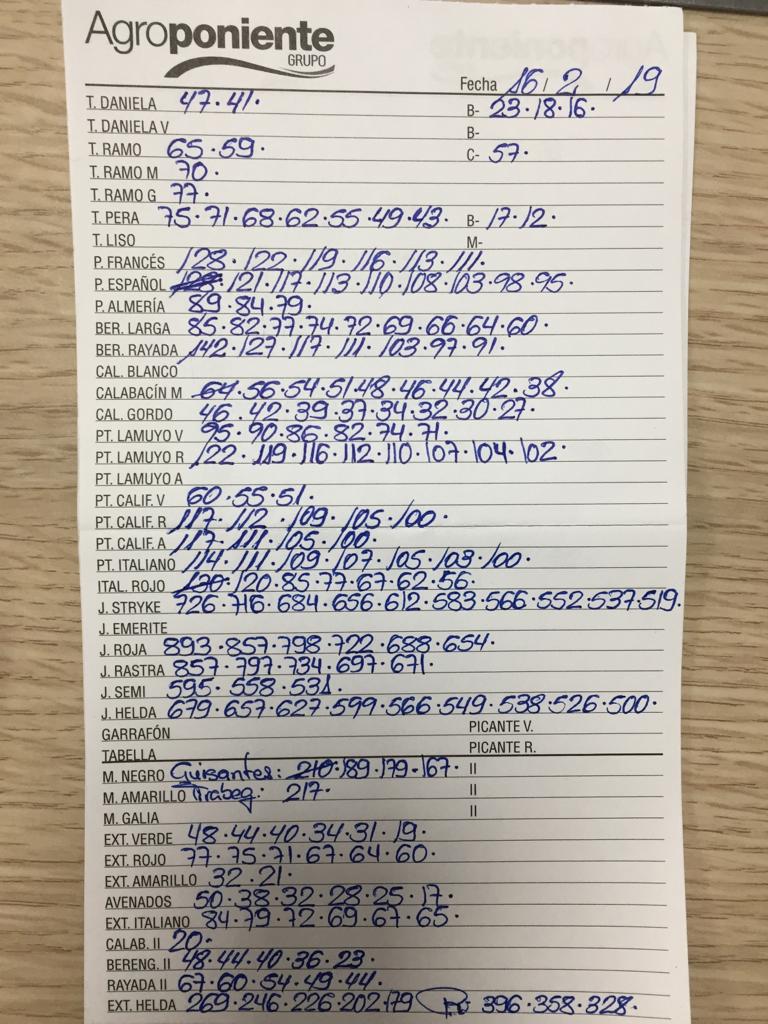 Agroponiente
GRUPO
Fecha 16 / 2 / 19
T. DANIELA 47·41· B- 23·18·16·
T. DANIELA V B-
T. RAMO 65·59· C- 57·
T. RAMO M 70·
T. RAMO G 77·
T. PERA 75·71·68·62·55·49·43· B- 17·12·
T. LISO M-
P. FRANCÉS 128·122·119·116·113·111·
P. ESPAÑOL 121·117·113·110·108·103·98·95·
P. ALMERÍA 89·84·79·
BER. LARGA 85·82·77·74·72·69·66·64·60·
BER. RAYADA 142·127·117·111·103·97·91·
CAL. BLANCO
CALABACÍN M 64·56·54·51·48·46·44·42·38·
CAL. GORDO 46·42·39·37·34·32·30·27·
PT. LAMUYO V 95·90·86·82·74·71·
PT. LAMUYO R 122·119·116·112·110·107·104·102·
PT. LAMUYO A
PT. CALIF. V 60·55·51·
PT. CALIF. R 117·112·109·105·100·
PT. CALIF. A 117·111·105·100·
PT. ITALIANO 114·111·109·107·105·103·100·
ITAL. ROJO 130·120·85·77·67·62·56·
J. STRYKE 726·716·684·656·612·583·566·552·537·519·
J. EMERITE
J. ROJA 893·857·798·722·688·654·
J. RASTRA 857·797·734·697·671·
J. SEMI 595·558·531·
J. HELDA 679·657·627·599·566·549·538·526·500·
GARRAFÓN PICANTE V.
TABELLA PICANTE R.
M. NEGRO Guisantes: 210·189·179·167· II
M. AMARILLO 217· II
M. GALIA II
EXT. VERDE 48·44·40·34·31·19·
EXT. ROJO 77·75·71·67·64·60·
EXT. AMARILLO 32·21·
AVENADOS 50·38·32·28·25·17·
EXT. ITALIANO 84·79·72·69·67·65·
CALAB. II 20·
BERENG. II 48·44·40·36·23·
RAYADA II 67·60·54·49·44·
EXT. HELDA 269·246·226·202·179 396·358·328·